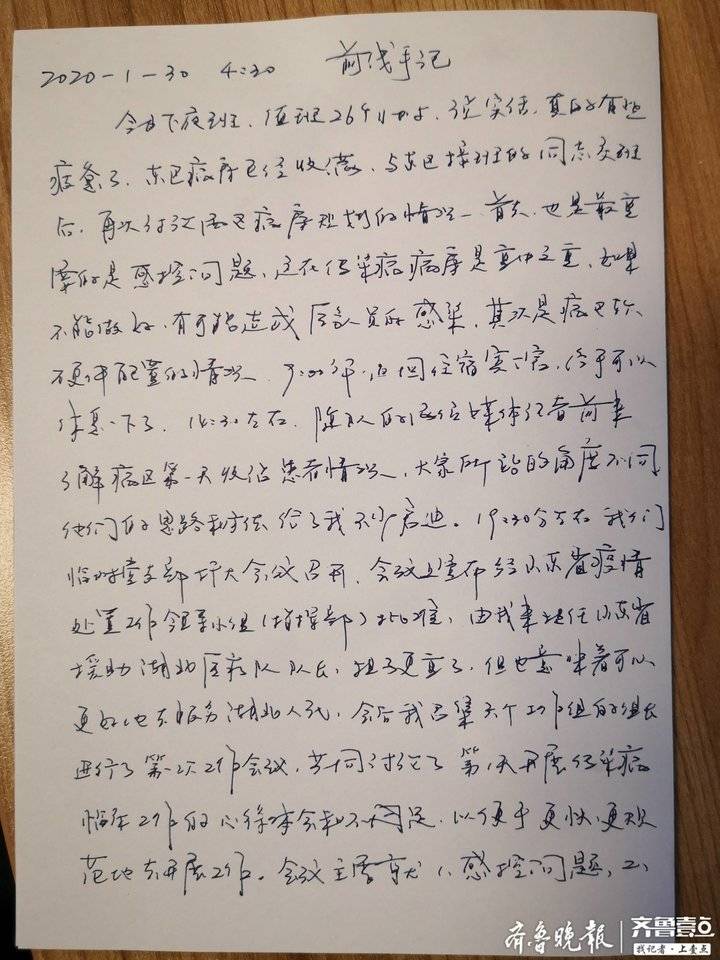 2020-1-30 4:30 前线手记
今日下夜班、值班26个小时、说实话、真的有些
疲惫了、东区病房已经收满、与东区接班的同志交班
后、再次讨论西区病房规划的情况、首先、也是最重
要的是感控问题、这在传染病病房是重中之重、如果
不能做好、有可能造成医务人员的感染、其次是病区
硬件配置的情况、9:00 返回住宿宾馆、终于可以
休息一下了。14:30左右、随队的 媒体记者前来
了解病区第一天收治患者情况、大家所站的角度不同
他们的思路和方法给了我不少启迪。19:30分左右我们
临时党支部扩大会议召开、会议上宣布经山东省疫情
处置工作领导小组(指挥部)批准、由我来担任山东省
援助湖北医疗队队长、担子更重了、但也意味着可以
更好地去服务湖北人民、会后我召集六个工作组的组长
进行了第一次工作会议、共同讨论了第一天开展传染病
临床工作的心得体会和不足、以便于更快、更规
范地去开展工作。会议主要就1、感控问题、2、
齐鲁晚报
齐鲁壹点
找记者·上壹点